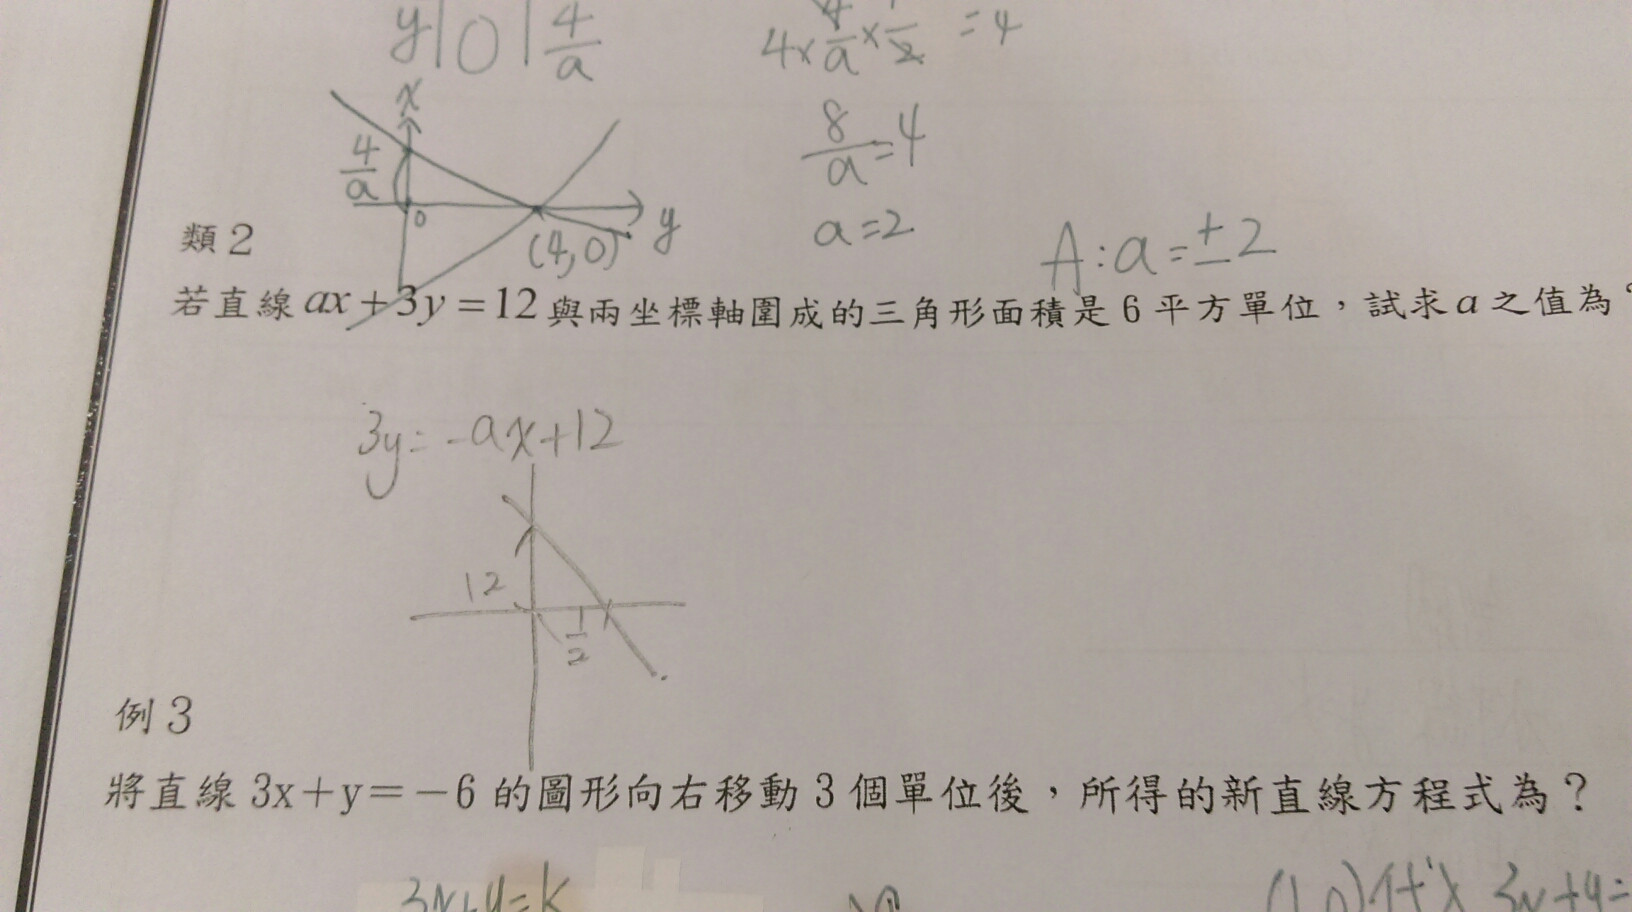 y|0|4/a
4×4/a×1/2=4
x
4/a
8/a=4
0
y
(4,0)
a=2
A:a=±2
類2
若直線ax+3y=12與兩坐標軸圍成的三角形面積是6平方單位，試求a之值為？
3y=-ax+12
12
1/2
例3
將直線3x+y=-6的圖形向右移動3個單位後，所得的新直線方程式為？
3x+y=k
3x+y=